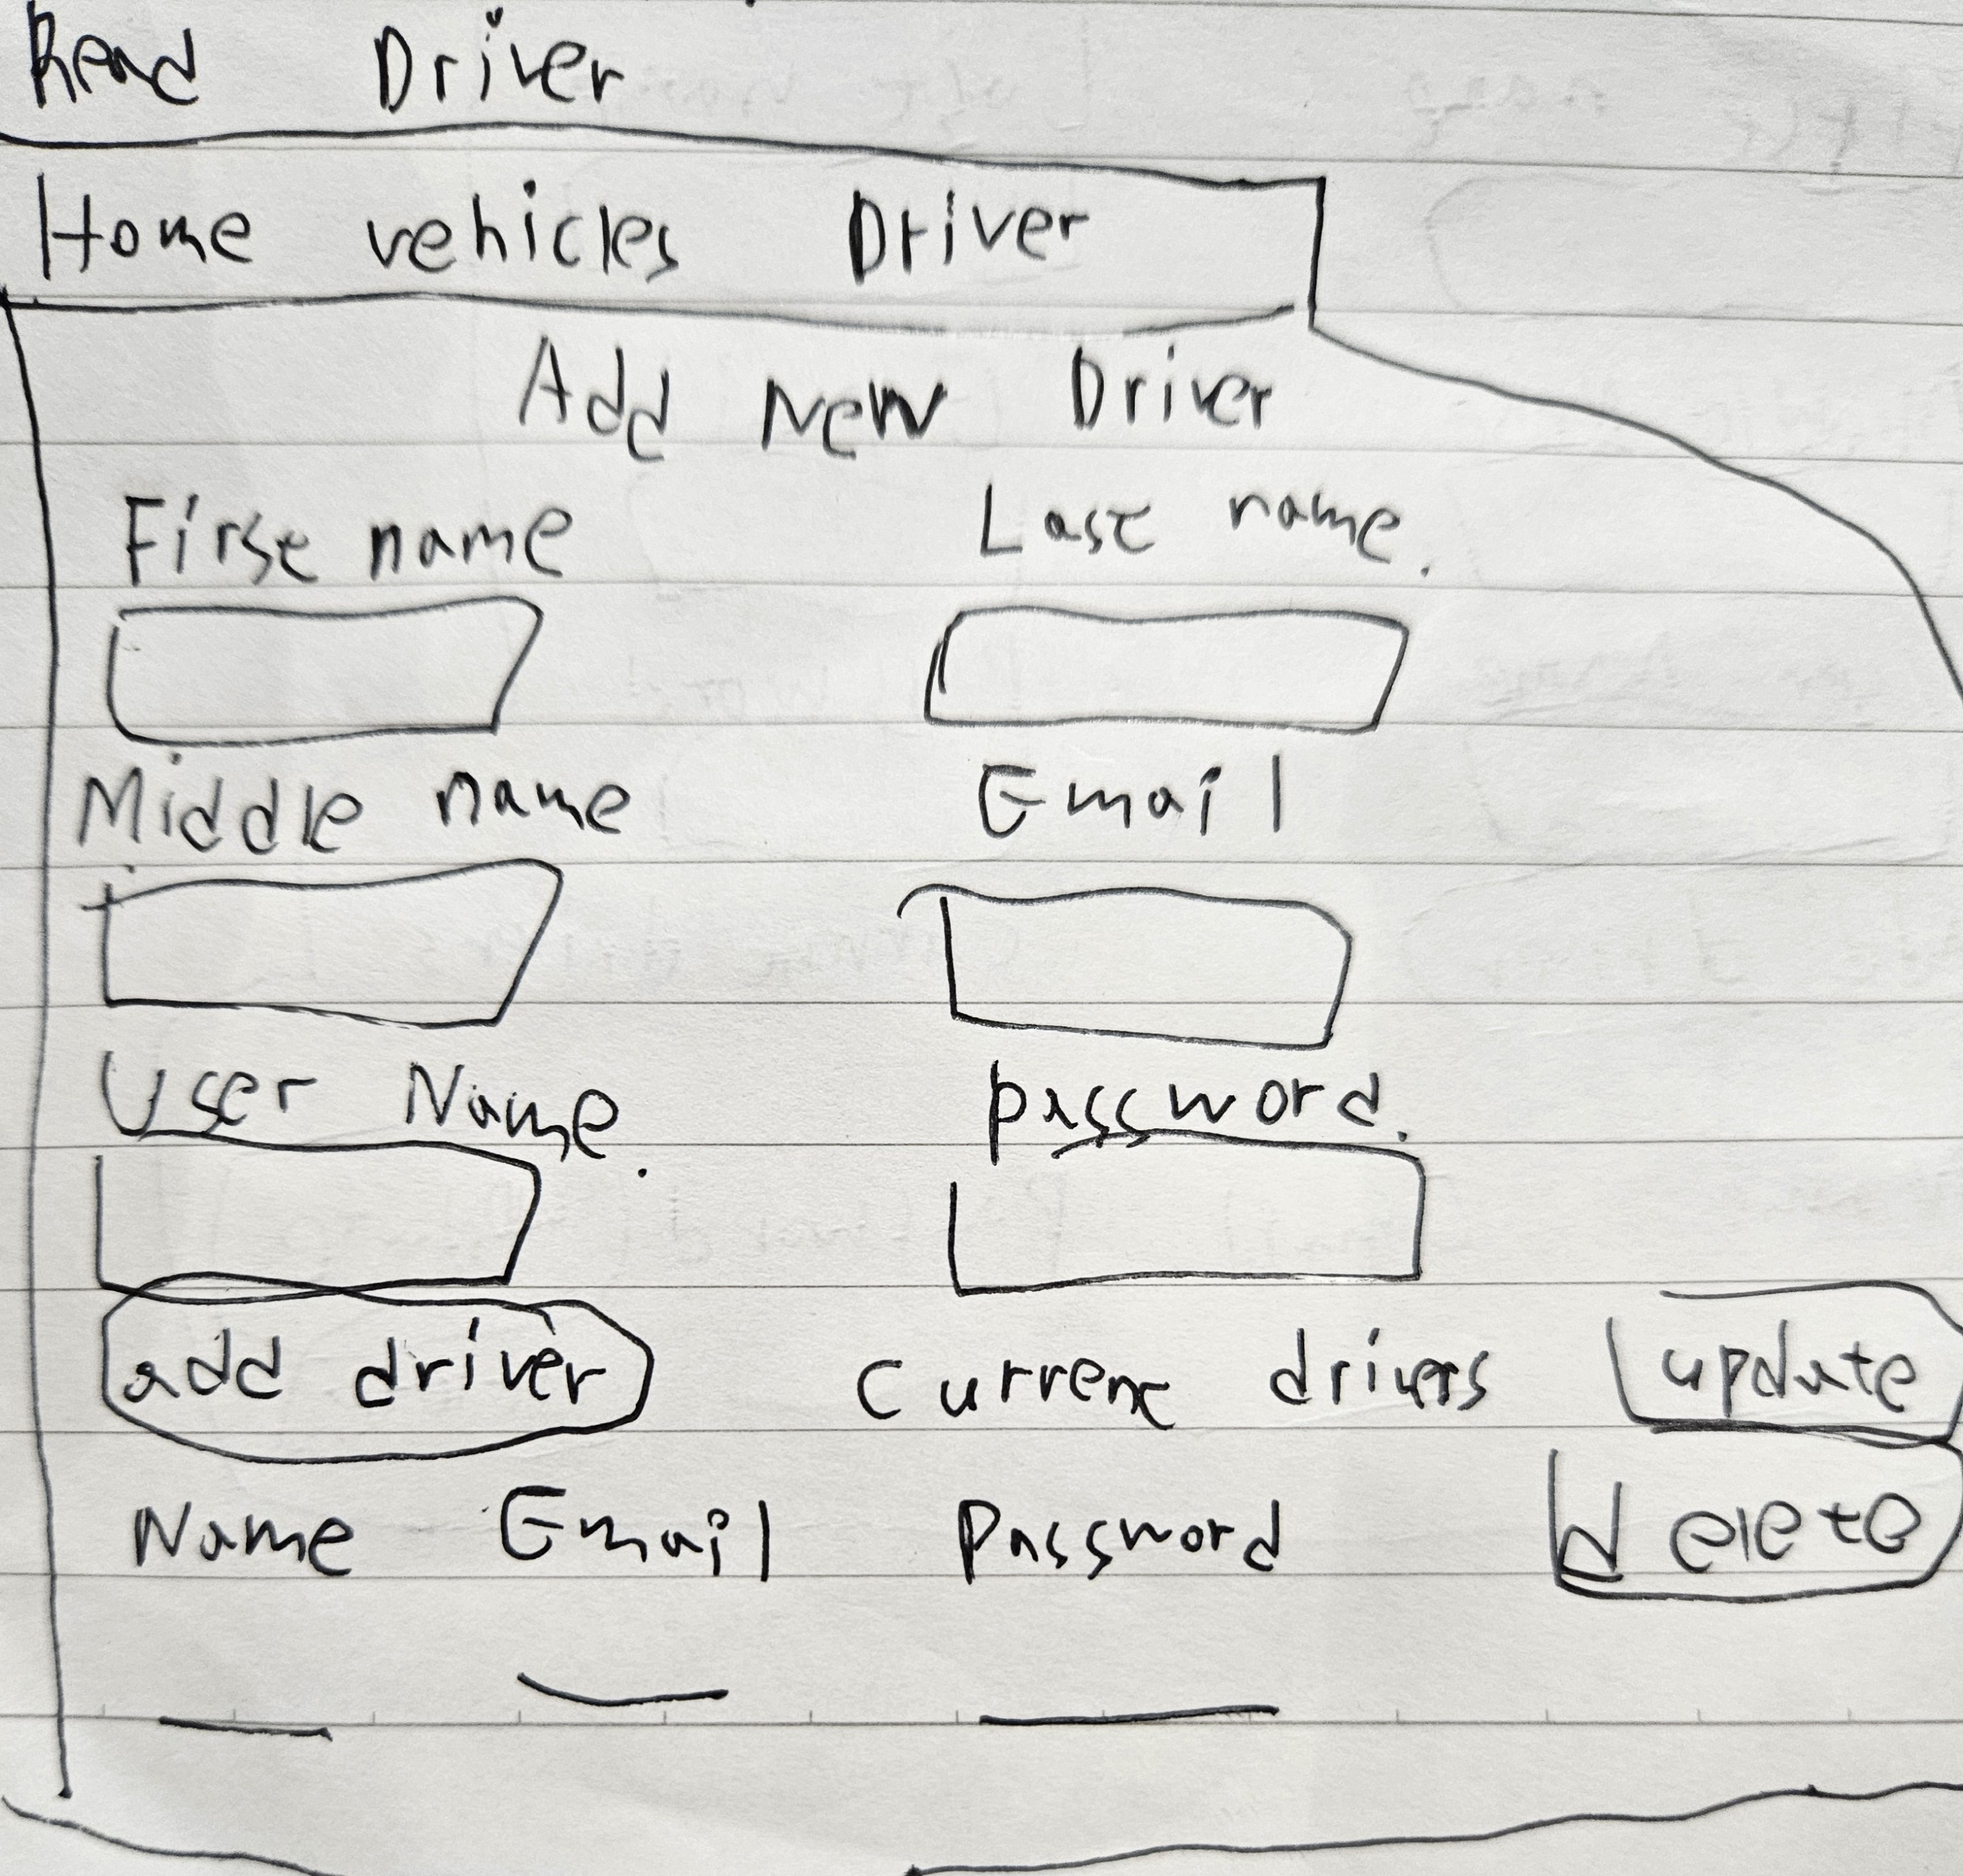 Read Driver
Home vehicles Driver
Add New Driver
First name Last name.
Middle name Email
User Name. password.
add driver Current drivers update
Name Email Password delete